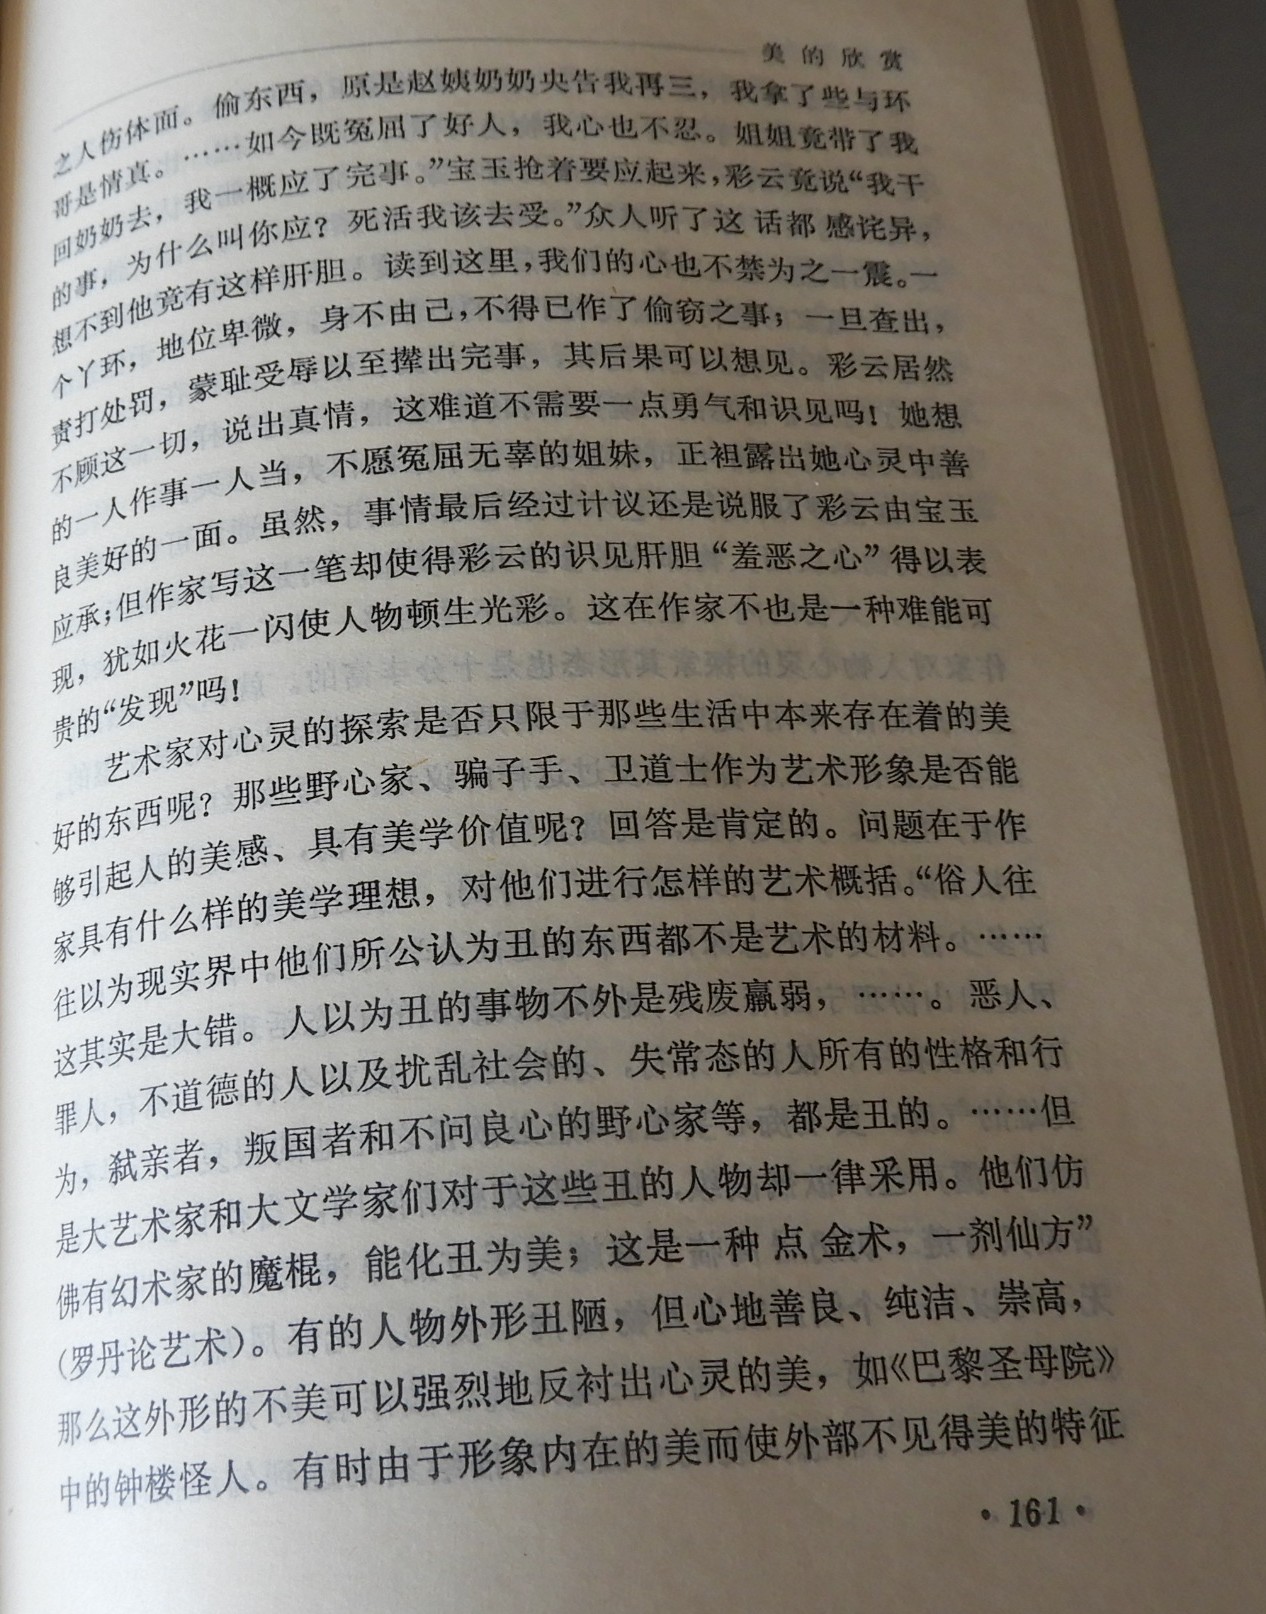 美的欣赏
之人伤体面。偷东西，原是赵姨奶奶央告我再三，我拿了些与环
哥是情真。……如今既冤屈了好人，我心也不忍。姐姐竟带了我
回奶奶去，我一概应了完事。”宝玉抢着要应起来，彩云竟说“我干
的事，为什么叫你应？死活我该去受。”众人听了这话都感诧异，
想不到他竟有这样肝胆。读到这里，我们的心也不禁为之一震。一
个丫环，地位卑微，身不由己，不得已作了偷窃之事；一旦查出，
责打处罚，蒙耻受辱以至撵出完事，其后果可以想见。彩云居然
不顾这一切，说出真情，这难道不需要一点勇气和识见吗！她想
的一人作事一人当，不愿冤屈无辜的姐妹，正袒露出她心灵中善
良美好的一面。虽然，事情最后经过计议还是说服了彩云由宝玉
应承；但作家写这一笔却使得彩云的识见肝胆“羞恶之心”得以表
现，犹如火花一闪使人物顿生光彩。这在作家不也是一种难能可
贵的“发现”吗！
艺术家对心灵的探索是否只限于那些生活中本来存在着的美
好的东西呢？那些野心家、骗子手、卫道士作为艺术形象是否能
够引起人的美感、具有美学价值呢？回答是肯定的。问题在于作
家具有什么样的美学理想，对他们进行怎样的艺术概括。“俗人往
往以为现实界中他们所公认为丑的东西都不是艺术的材料。……
这其实是大错。人以为丑的事物不外是残废羸弱，……。恶人、
罪人，不道德的人以及扰乱社会的、失常态的人所有的性格和行
为，弑亲者，叛国者和不问良心的野心家等，都是丑的。……但
是大艺术家和大文学家们对于这些丑的人物却一律采用。他们仿
佛有幻术家的魔棍，能化丑为美；这是一种点金术，一剂仙方”
（罗丹论艺术）。有的人物外形丑陋，但心地善良、纯洁、崇高，
那么这外形的不美可以强烈地反衬出心灵的美，如《巴黎圣母院》
中的钟楼怪人。有时由于形象内在的美而使外部不见得美的特征
·161·